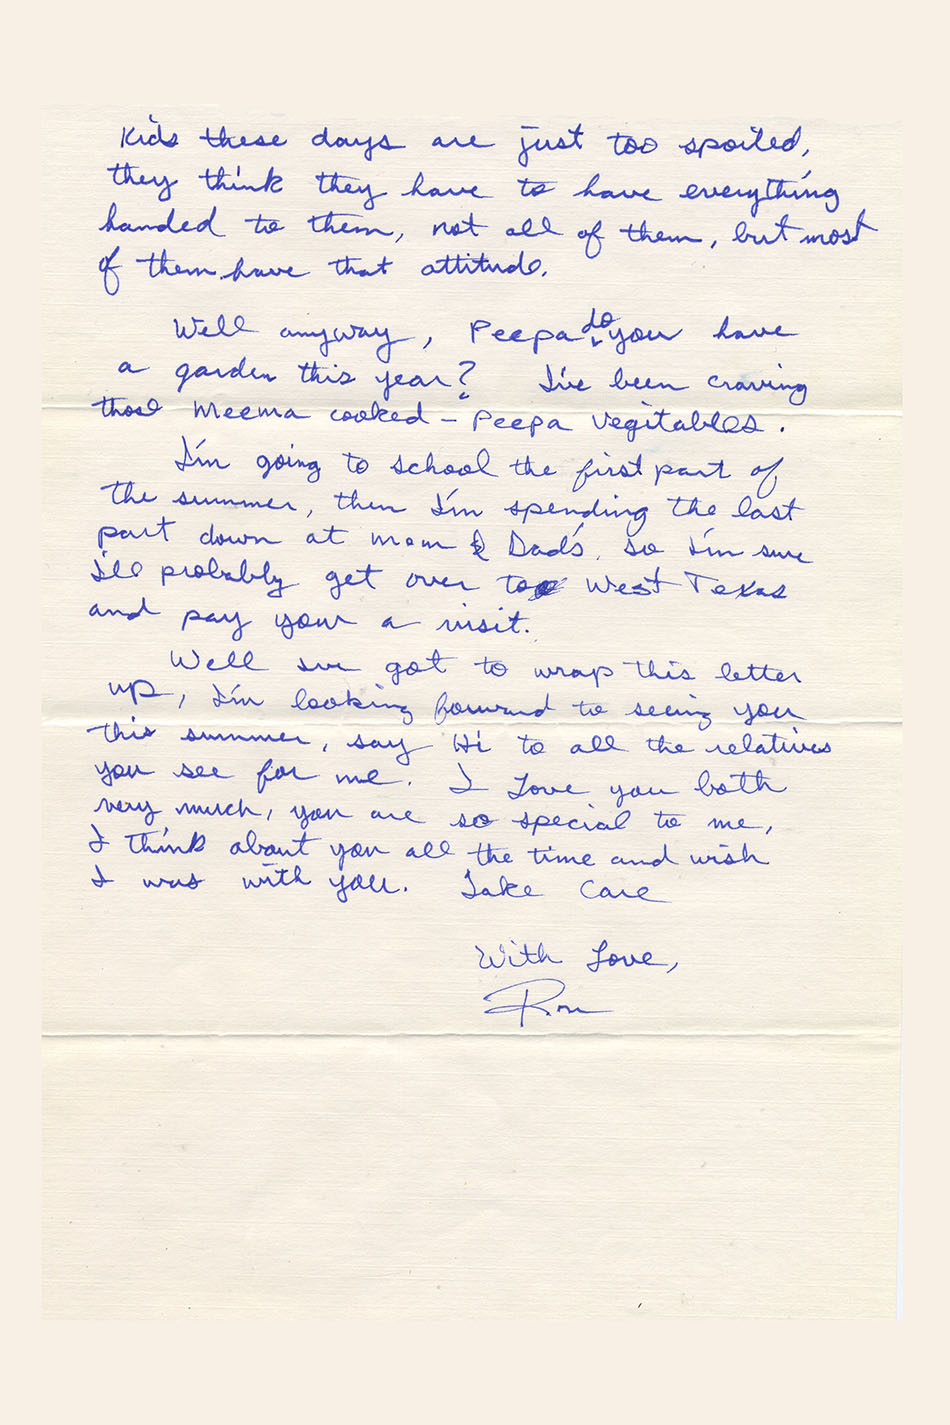 Kids these days are just too spoiled,
they think they have to have everything
handed to them, not all of them, but most
of them have that attitude.
Well anyway, Peepa do you have
a garden this year? I've been craving
those Meema cooked - Peepa Vegitables.
I'm going to school the first part of
the summer, then I'm spending the last
part down at mom & Dad's, so I'm sure
I'll probably get over to West Texas
and pay your a visit.
Well I've got to wrap this letter
up, I'm looking forward to seeing you
this summer, say Hi to all the relatives
you see for me. I Love you both
very much, you are so special to me,
I think about you all the time and wish
I was with you. Take Care
With Love,
Ron